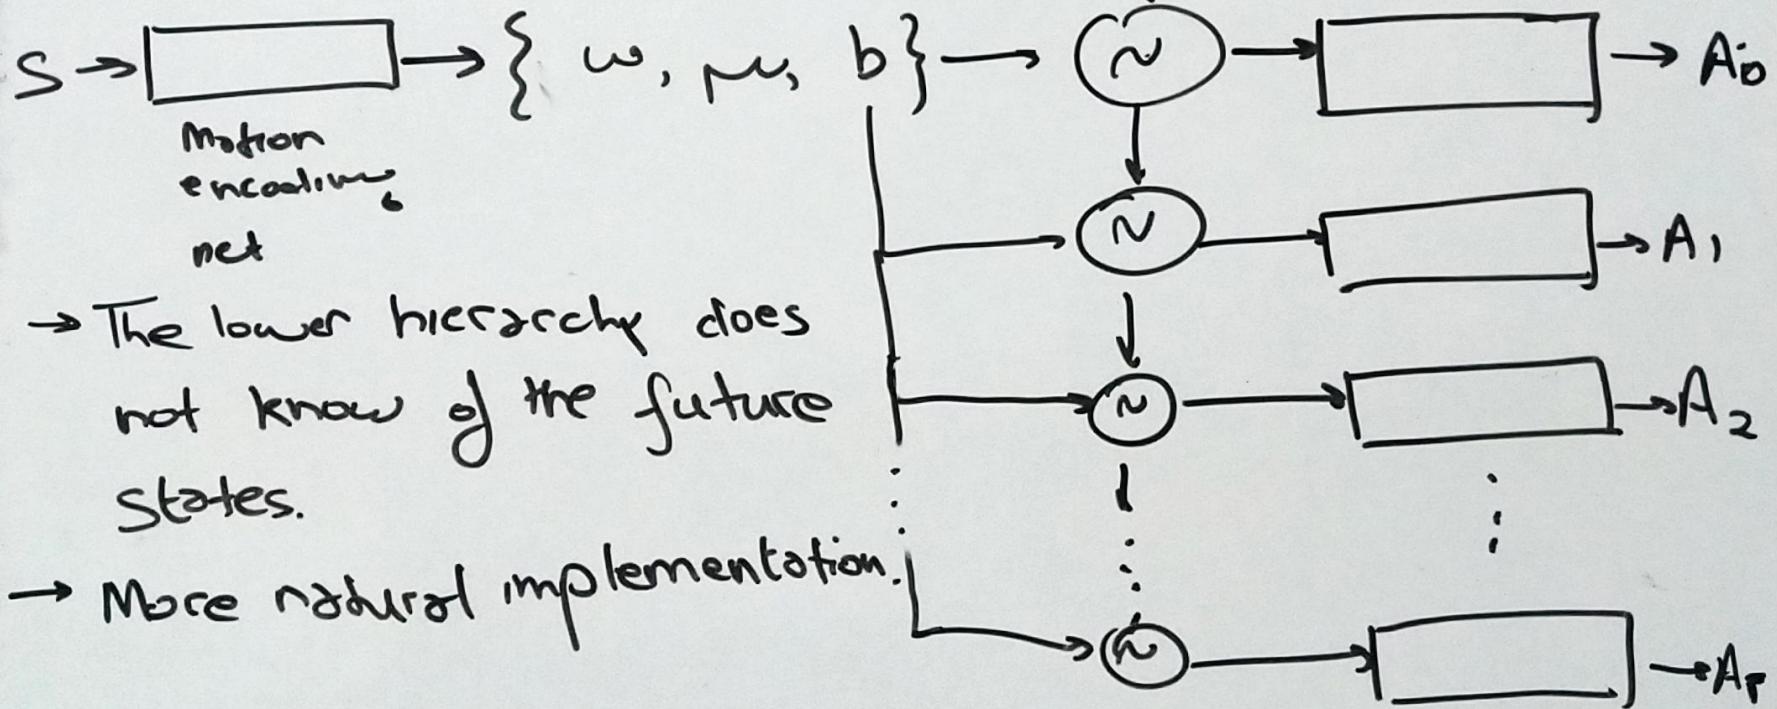 S → → { ω, μ, b } → ~ → → A0
Motion
encoding
net
~ → A1
→ The lower hierarchy does
~ → A2
not know of the future
states.
→ More natural implementation.
~ → AP